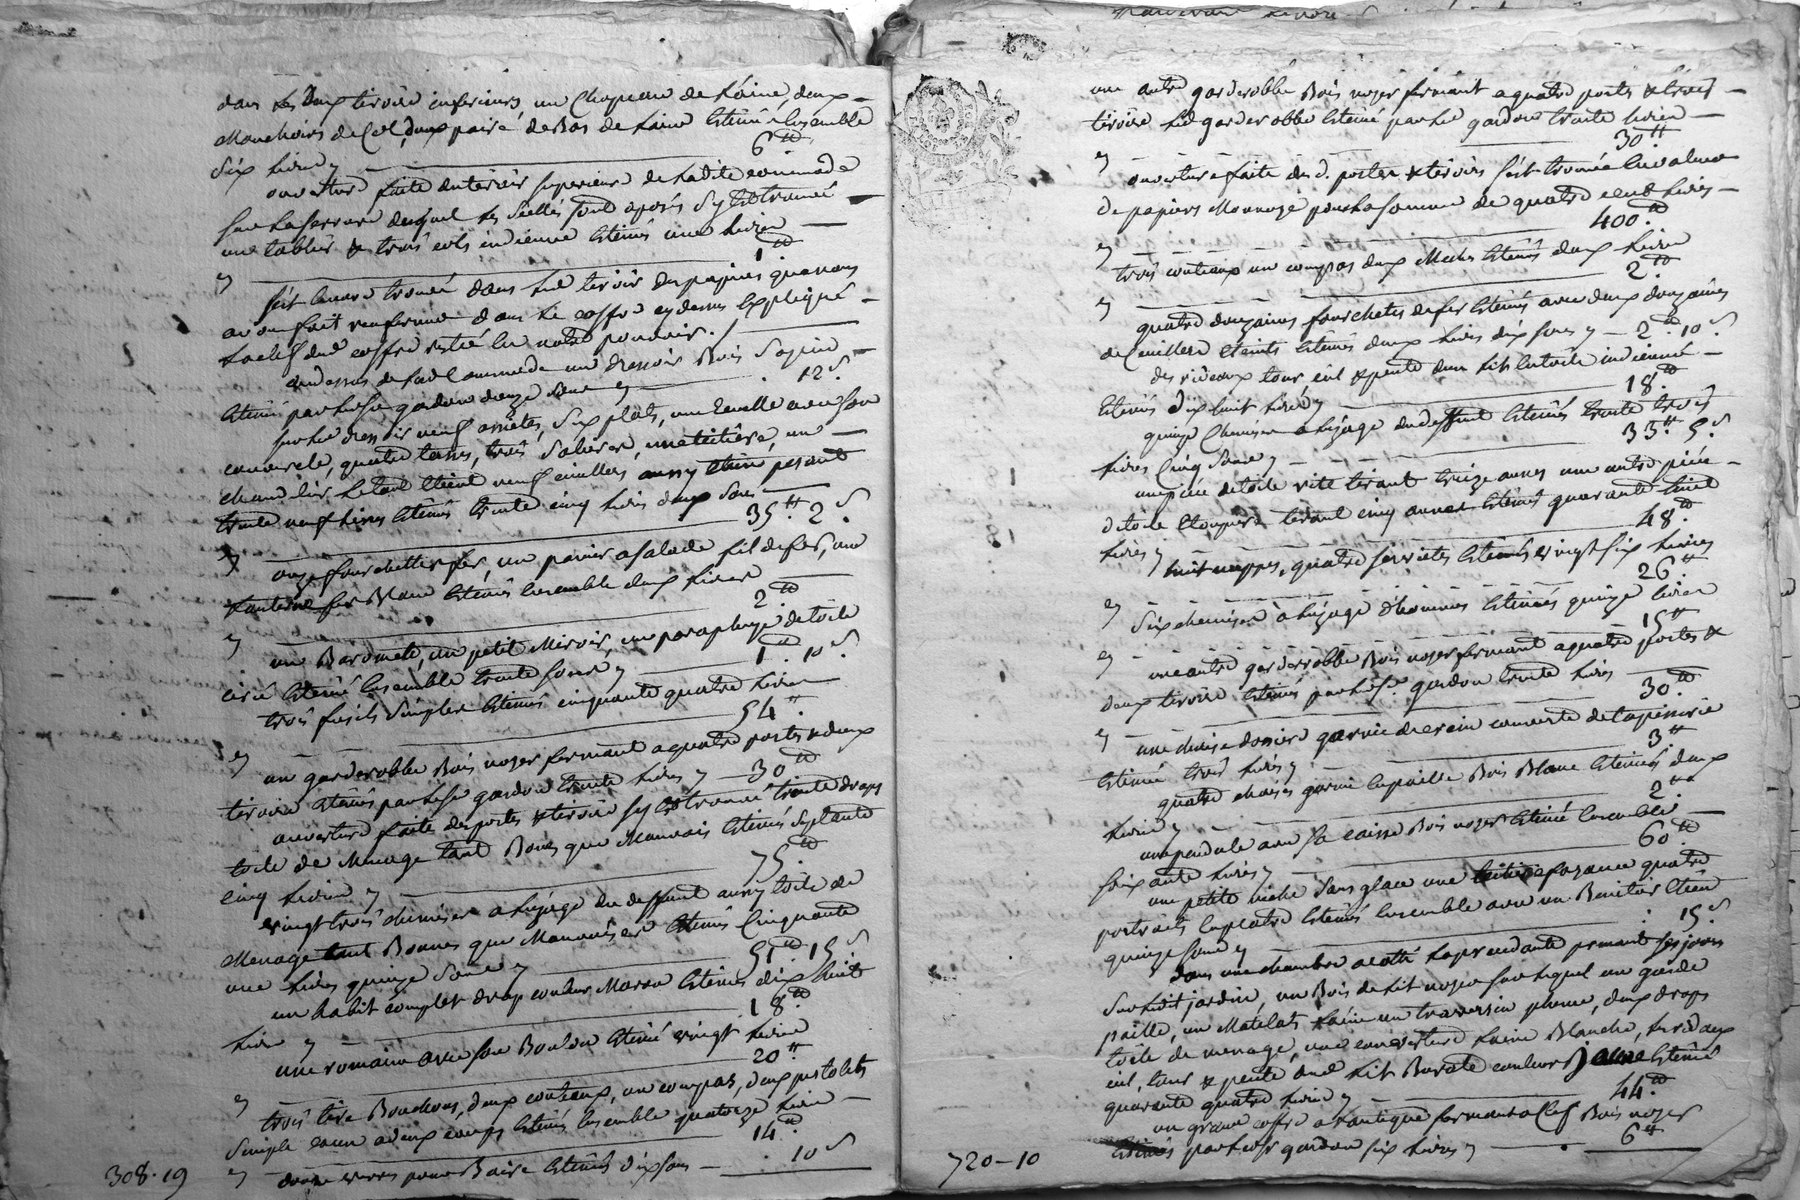 dans les deux tiroirs inferieurs un chapeau de Laine, deux
Mouchoirs de Col, deux paire de Bas de Laine Estimé Ensemble
six livres 6 ᵗᵗ
ouverture faitte du tiroir superieur de Ladite commode
sur La serrure duquel les scellés sont aposés sy est trouvé
une tablier & trois cols indienne Estimés une livre
1 ᵗᵗ
s'est Encore trouvé dans led tiroir des papiers que nous
avons fait renfermer dans le coffre cy dessus Expliqué
La clef dud coffre restée En notre pouvoir
au dessus de Lad Commode un dressoir Bois Sapin
Estimé par Led sr gardon douze sous 12 s
sur Led dressoir neuf assietes, six plats, une Ecuelle avec son
couvercle, quatre tasses, trois Salieres, une , un
chandelier Le tout Etain neuf cuilleres aussy Etain pesant
trente neuf livres Estimés trente cinq livres deux sous
35 ᵗᵗ 2 s
onze fourchettes fer, un panier a salade fil de fer, une
Lanterne fer Blanc Estimés Ensemble deux livres
2 ᵗᵗ
un Baromete, un petit Miroir, un parapluye de toile
cirée Estimé Ensemble trente sous 1 ᵗᵗ 10 s
trois fusils simples Estimés cinquante quatre livres
54 ᵗᵗ
un garderobbe Bois noyer fermant a quatre portes & deux
tiroirs Estimés par Led sr gardon trente livres 30 ᵗᵗ
ouverture faite des portes & tiroirs sy est trouvé trente draps
toile de Menage tant Bons que Mauvais Estimés Septante
cinq livres 75 ᵗᵗ
vingt trois chemises a Lusage du deffunt aussy toile de
Menage tant Bonnes que Mauvaises Estimés Cinquante
une livres quinze sous 51 ᵗᵗ 15 s
un habit complet drap couleur Maron Estimés dix huit
livres 18 ᵗᵗ
une romaine avec son Boulon Estimé vingt livres
20 ᵗᵗ
trois tire Bouchons, deux couteaux, un compas, deux pistolets
simple a deux coups Estimés Ensemble quatorze livres
14 ᵗᵗ
douze verres pour Boire Estimés dix sous 10 s
308 . 19
une autre garderobbe Bois noyer fermant a quatre portes & trois
tiroirs Led garderobbe Estimé par Led gardon trente livres
30 ᵗᵗ
ouverture faite des d. portes & tiroirs s'est trouvée En valeur
de papiers Monnoye pour La somme de quatre cent livres
400 ᵗᵗ
trois couteaux un compas deux Estimés deux livres
2 ᵗᵗ
quatre douzaines fourchetes de fer Estimés avec deux douzaines
de Cuilleres Etaints Estimés deux livres dix sous 2 ᵗᵗ 10 s
des rideaux tour, ciel & pente dun lit En toile indienne
Estimés dix huit livres 18 ᵗᵗ
quinze Chemises a Lusage du deffunt Estimés trente trois
livres Cinq sous 33 ᵗᵗ 5 s
une piece de toile rite tirant treize aunes une autre piece
de toile Etoupes tirant cinq aunes Estimés quarante huit
livres 48 ᵗᵗ
huit nappes, quatre serviettes Estimés vingt six livres
26 ᵗᵗ
Six chemises a Lusage d'hommes Estimés quinze livres
15 ᵗᵗ
une autre garderobbe Bois noyer fermant a quatre portes &
deux tiroirs Estimés par Led sr gardon trente livres
30 ᵗᵗ
une chaise dossier garnie de crain couverte de tapisserie
Estimée trois livres 3 ᵗᵗ
quatre chaises garnie En paille Bois Blanc Estimées deux
livres 2 ᵗᵗ
une pendule avec sa caisse Bois noyer Estimé Ensemble
soixante livres 60 ᵗᵗ
une petite niche sans glace une fayance quatre
portraits En platre Estimés Ensemble avec un Benitier Etain
quinze sous 15 s
dans une chambre a cotté La precedante prenant ses jours
sur Ledit jardin, un Bois de Lit noyer sur Lequel un garde
paille, un Matelat Laine un traversin plume, deux draps
toile de menage, une couverture Laine Blanche, Les rideaux
ciel, tour & pente dud Lit Burate couleur Jaune Estimé
quarante quatre livres 44 ᵗᵗ
un grand coffre a Lantique fermant a Clef Bois noyer
Estimés par Led sr gardon six livres 6 ᵗᵗ
720 - 10